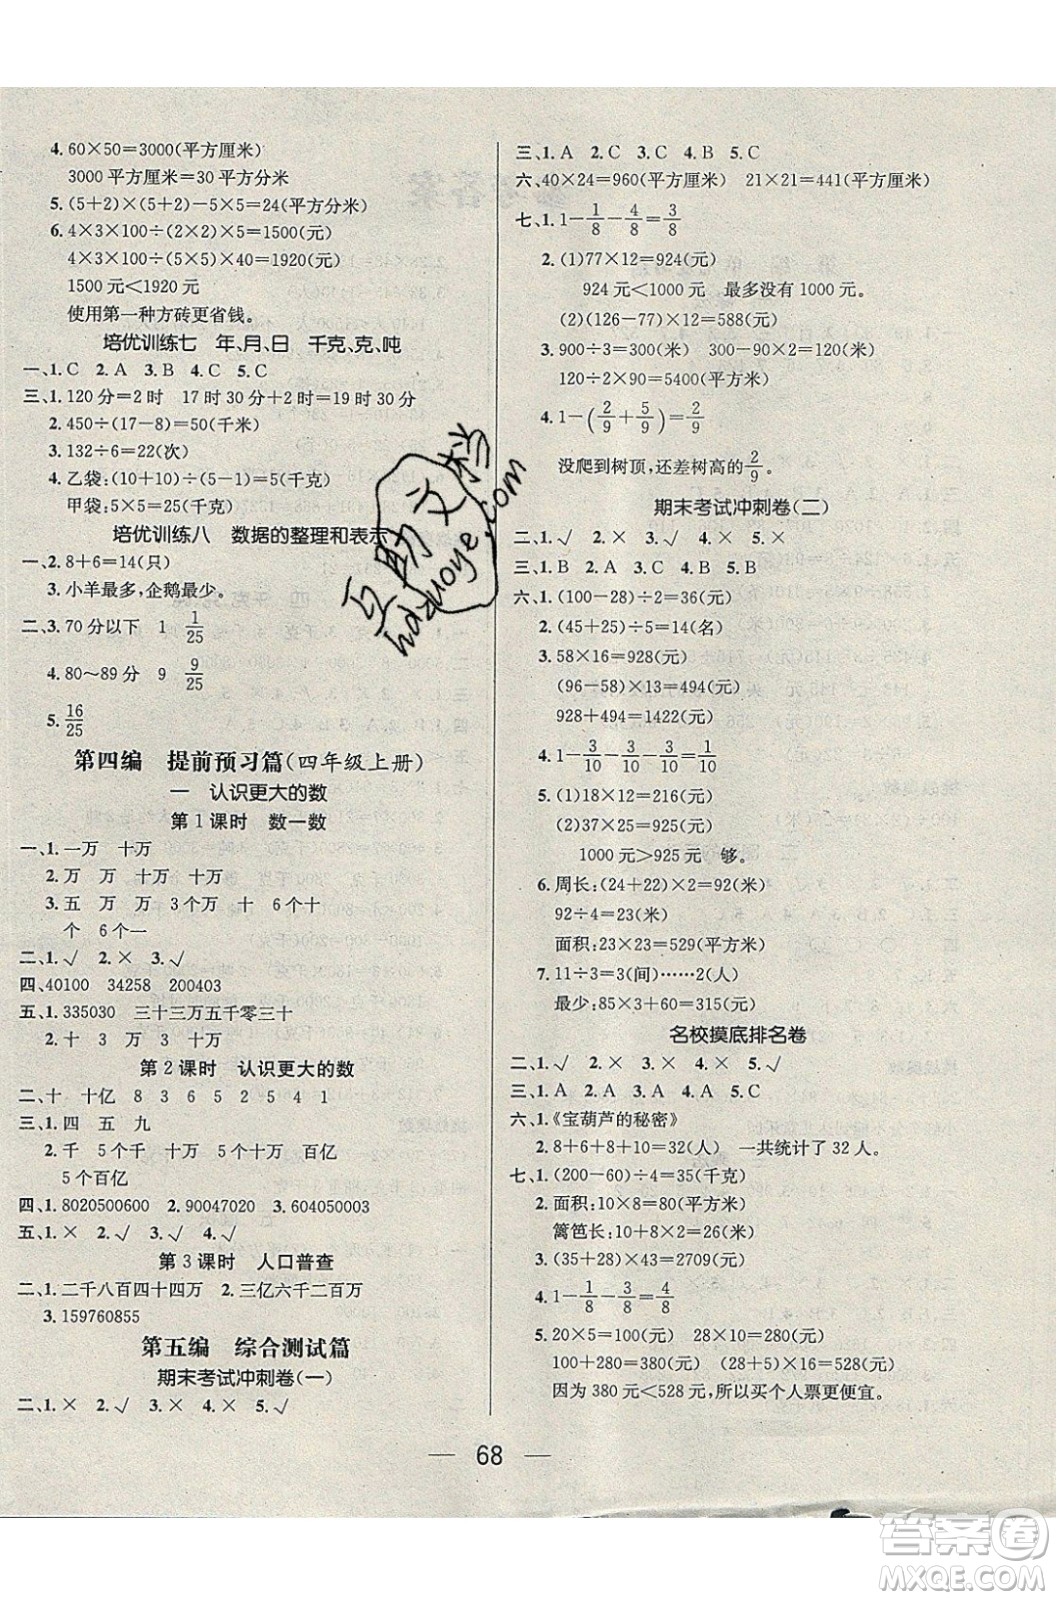 4. 60×50=3000(平方厘米)
3000 平方厘米=30 平方分米
5. (5+2)×(5+2)-5×5=24(平方分米)
6. 4×3×100÷(2×2)×5=1500(元)
4×3×100÷(5×5)×40=1920(元)
1500 元<1920 元
使用第一种方砖更省钱。
培优训练七 年、月、日 千克、克、吨
一、1. C 2. A 3. B 4. C 5. C
三、1. 120 分=2 时 17 时 30 分+2 时=19 时 30 分
2. 450÷(17-8)=50(千米)
3. 132÷6=22(次)
4. 乙袋:(10+10)÷(5-1)=5(千克)
甲袋:5×5=25(千克)
培优训练八 数据的整理和表示
一、2. 8+6=14(只)
3. 小羊最多,企鹅最少。
二、3. 70 分以下 1 1/25
4. 80~89 分 9 9/25
5. 16/25
第四编 提前预习篇(四年级上册)
一 认识更大的数
第 1 课时 数一数
一、1. 一万 十万
2. 万 万 十万 十万
3. 五 万 万 3个万 十 6个十
个 6个一
二、1. √ 2. × 3. √
四、40100 34258 200403
五、1. 335030 三十三万五千零三十
2. 十 三万 3万 十万
第 2 课时 认识更大的数
二、十 十亿 8 3 6 5 2 5 4 1
三、1. 四 五 九
2. 千 5个千 十万 5个十万 百亿
5个百亿
四、1. 8020500600 2. 90047020 3. 604050003
五、1. × 2. √ 3. √ 4. √
第 3 课时 人口普查
二、1. 二千八百四十四万 2. 三亿六千二百万
3. 159760855
第五编 综合测试篇
期末考试冲刺卷(一)
二、1. × 2. √ 3. × 4. × 5. √
三、1. A 2. C 3. C 4. B 5. C
六、40×24=960(平方厘米) 21×21=441(平方厘米)
七、1. 1-1/8-4/8=3/8
2. (1)77×12=924(元)
924 元<1000 元 最多没有 1000 元。
(2)(126-77)×12=588(元)
3. 900÷3=300(米) 300-90×2=120(米)
120÷2×90=5400(平方米)
4. 1-(2/9+5/9)=2/9
没爬到树顶,还差树高的2/9。
期末考试冲刺卷(二)
二、1. √ 2. × 3. √ 4. × 5. ×
三、1. B 2. B 3. A 4. B 5. B
六、1. (100-28)÷2=36(元)
2. (45+25)÷5=14(名)
3. 58×16=928(元)
(96-58)×13=494(元)
928+494=1422(元)
4. 1-3/10-3/10=4/10
5. (1)18×12=216(元)
(2)37×25=925(元)
1000 元>925 元 够。
6. 周长:(24+22)×2=92(米)
92÷4=23(米)
面积:23×23=529(平方米)
7. 11÷3=3(间)……2(人)
最少:85×3+60=315(元)
名校摸底排名卷
二、1. √ 2. × 3. × 4. × 5. √
三、1. A 2. A 3. A 4. A 5. C
六、1. 《宝葫芦的秘密》
2. 8+6+8+10=32(人) 一共统计了 32 人。
七、1. (200-60)÷4=35(千克)
2. 面积:10×8=80(平方米)
篱笆长:10+8×2=26(米)
3. (35+28)×43=2709(元)
4. 1-1/8-3/8=4/8
5. 20×5=100(元) 10×28=280(元)
100+280=380(元) (28+5)×16=528(元)
因为 380 元<528 元,所以买个人票更便宜。
— 68 —
互助文档
hdzuoye.com
答案圈
MXQE.COM